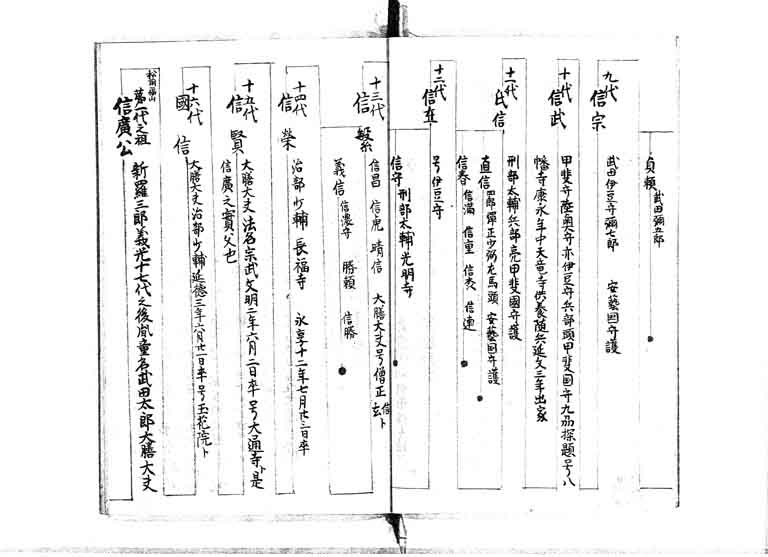 貞頼 武田彌五郎
九代
信宗 武田伊豆守彌七郎 安藝国守護
十代
信武 甲斐守陸奥守亦伊豆守兵部頭甲斐国守九州探題号八
幡寺康永年中天竜寺供養随兵延文三年出家
十一代
氏信 刑部太輔兵部亮甲斐國守護
直信 四郎彈正少弼左馬頭 安藝国守護
信春 信満 信重 信 信連
十二代
信在 号伊豆守
信守 刑部太輔光明寺
十三代
信繁 信昌 信虎 晴信 大膳大丈号僧正 信玄ト
義信 信濃守 勝頼 信勝
十四代
信榮 治部少輔 長福寺 永享十二年七月廿三日卒
十五代
信賢 大膳大丈法名宗武文明二年六月二日卒号大通寺ト是
信廣之實父也
十六代
國信 大膳大丈治部少輔延徳三年六月廿一日卒号玉花院ト
松前福山
第一代之祖
信廣公 新羅三郎義光十七代之後胤童名武田太郎大膳大丈